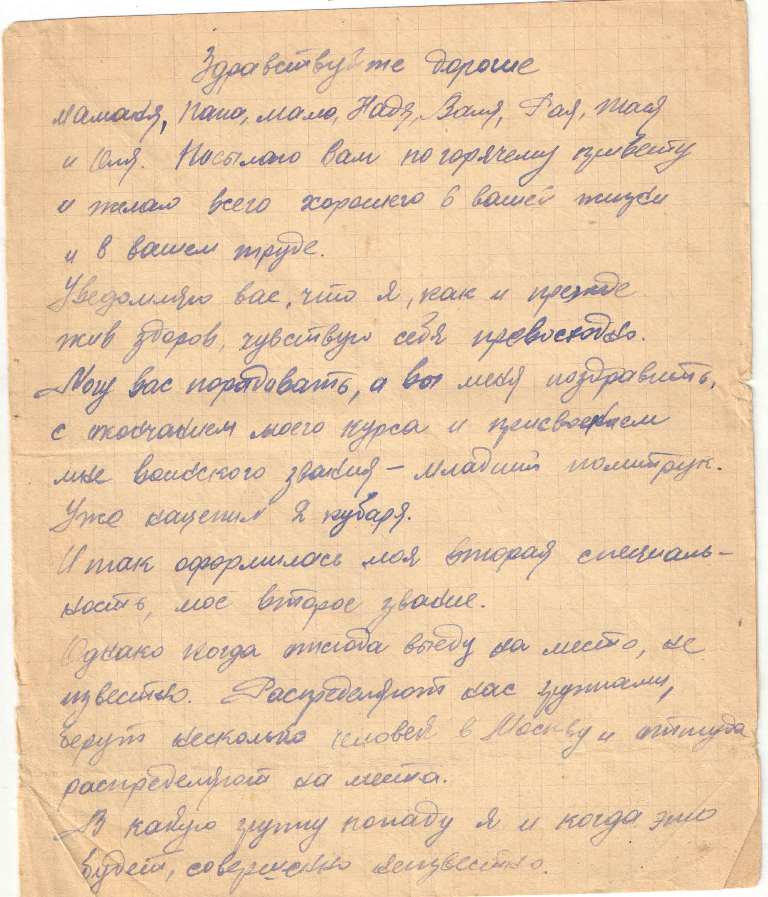 Здравствуйте дорогие
маманя, папа, мама, Надя, Валя, Рая, Тася
и Юля. Посылаю вам по горячему привету
и желаю всего хорошего в вашей жизни
и в вашем труде.
Уведомляю вас, что я, как и прежде
жив здоров, чувствую себя превосходно.
Могу вас порадовать, а вы меня поздравить,
с окончанием моего курса и присвоением
мне воинского звания – младший политрук.
Уже нацепил 2 кубаря.
Итак оформилась моя вторая специаль-
ность, мое второе звание.
Однако когда отсюда выеду на место, не
известно. Распределяют нас группами,
берут несколько человек в Москву и оттуда
распределяют на места.
В какую группу попаду я и когда это
будет, совершенно неизвестно.